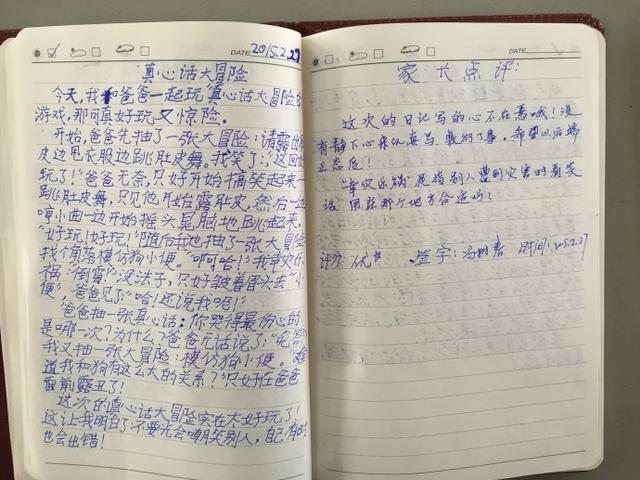 DATE 2015.2.27
真心话大冒险
今天,我和爸爸一起玩真心话大冒险的
游戏,那可真好玩又惊险。
开始,爸爸先抽了一张大冒险:请露出肚
皮边甩衣服边跳肚皮舞。我笑了:“这回好
玩了!”爸爸无奈,只好开始搞笑起来—
跳肚皮舞,只见他开始露肚皮,然后一边
哼小曲一边开始摇头晃脑地跳起来。
“好玩!好玩!”随后我也抽了一张大冒险
找个角落模仿狗小便。“啊哈!”我幸灾乐
祸“倒霉”没法子,只好皱着眉头去“小
便”,爸爸见了:“哈!还说我呢!”
爸爸抽一张真心话:你哭得最伤心的
是哪一次?为什么?爸爸
我又抽一张大冒险:模仿狗小便。“难
道我和狗有这么大的关系?”只好在爸爸
面前露丑了!
这次的真心话大冒险实在太好玩了!
这让我明白了不要光会嘲笑别人,自己有时
也会出错!
DATE
家长点评:
这次的日记写的心不在焉哦!没
有静下心来认真写,敷衍了事。希望以后端
正态度!
“幸灾乐祸”是指别人遭到灾害时看笑
话。用在那个地方合适吗?
评分:优 签字: 时间:2015.2.27